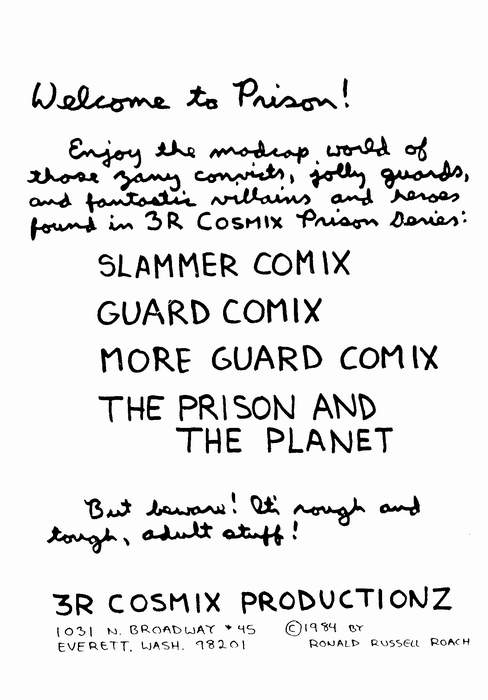 Welcome to Prison!
Enjoy the madcap world of
those zany convicts, jolly guards,
and fantastic villains and heroes
found in 3R COSMIX Prison Series:
SLAMMER COMIX
GUARD COMIX
MORE GUARD COMIX
THE PRISON AND
THE PLANET
But beware! It's rough and
tough, adult stuff!
3R COSMIX PRODUCTIONZ
1031 N. BROADWAY #45 ©1984 BY
EVERETT, WASH. 98201 RONALD RUSSELL ROACH